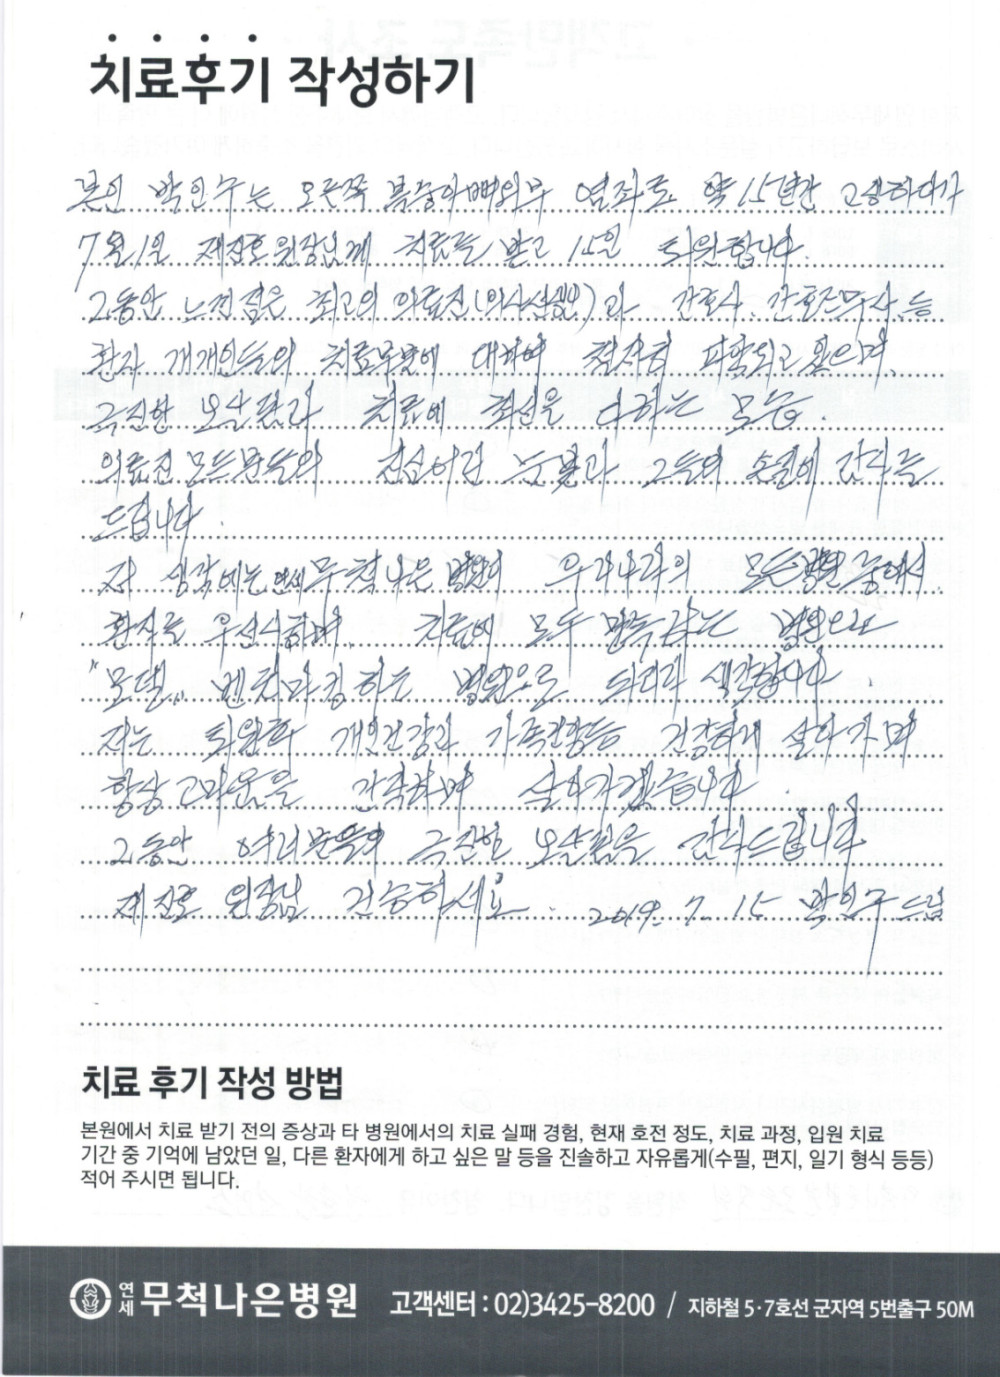 치료후기 작성하기
본인 박인수는 오른쪽 복숭아뼈외부 염좌로 약 15년간 고생하다가
7월1일 제진호 원장님께 치료를 받고 15일 퇴원합니다.
그동안 느낀점은 최고의 의료진(의사선생님)과 간호사, 간호조무사 등
환자 개개인들의 치료부분에 대하여 철저히 파악되고 있으며,
극진한 보살핌과 치료에 최선을 다하는 모습.
의료진 모든분들의 진심어린 눈빛과 그들의 손길에 감사를
드립니다.
저 생각에는 연세무척나은 병원이 우리나라의 모든병원중에서
환자를 우선시하며, 치료에 모두 만족하는 병원으로
"모델" 벤치마킹하는 병원으로 되리라 생각합니다.
저는 퇴원후 개인건강과 가족건강등 건강하게 살아가며
항상 고마움을 간직하며 살아가겠습니다.
그동안 여러분들의 극진한 보살핌을 감사드립니다
제진호 원장님 건승하세요. 2019. 7. 15 드림
치료 후기 작성 방법
본원에서 치료 받기 전의 증상과 타 병원에서의 치료 실패 경험, 현재 호전 정도, 치료 과정, 입원 치료
기간 중 기억에 남았던 일, 다른 환자에게 하고 싶은 말 등을 진솔하고 자유롭게(수필, 편지, 일기 형식 등등)
적어 주시면 됩니다.
연세 무척나은병원 고객센터 : 02)3425-8200 / 지하철 5·7호선 군자역 5번출구 50M